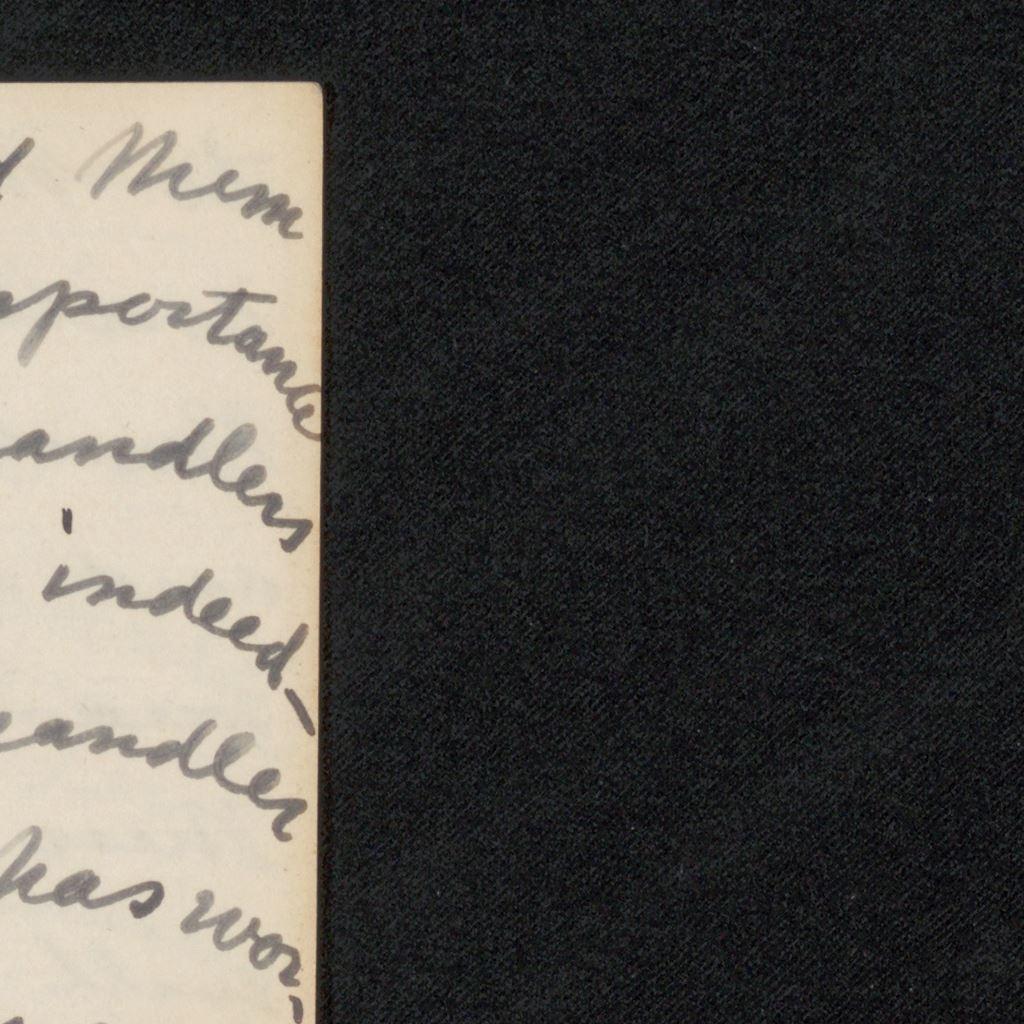 Mem
portance
andlers
indeed-
andler
has wor-